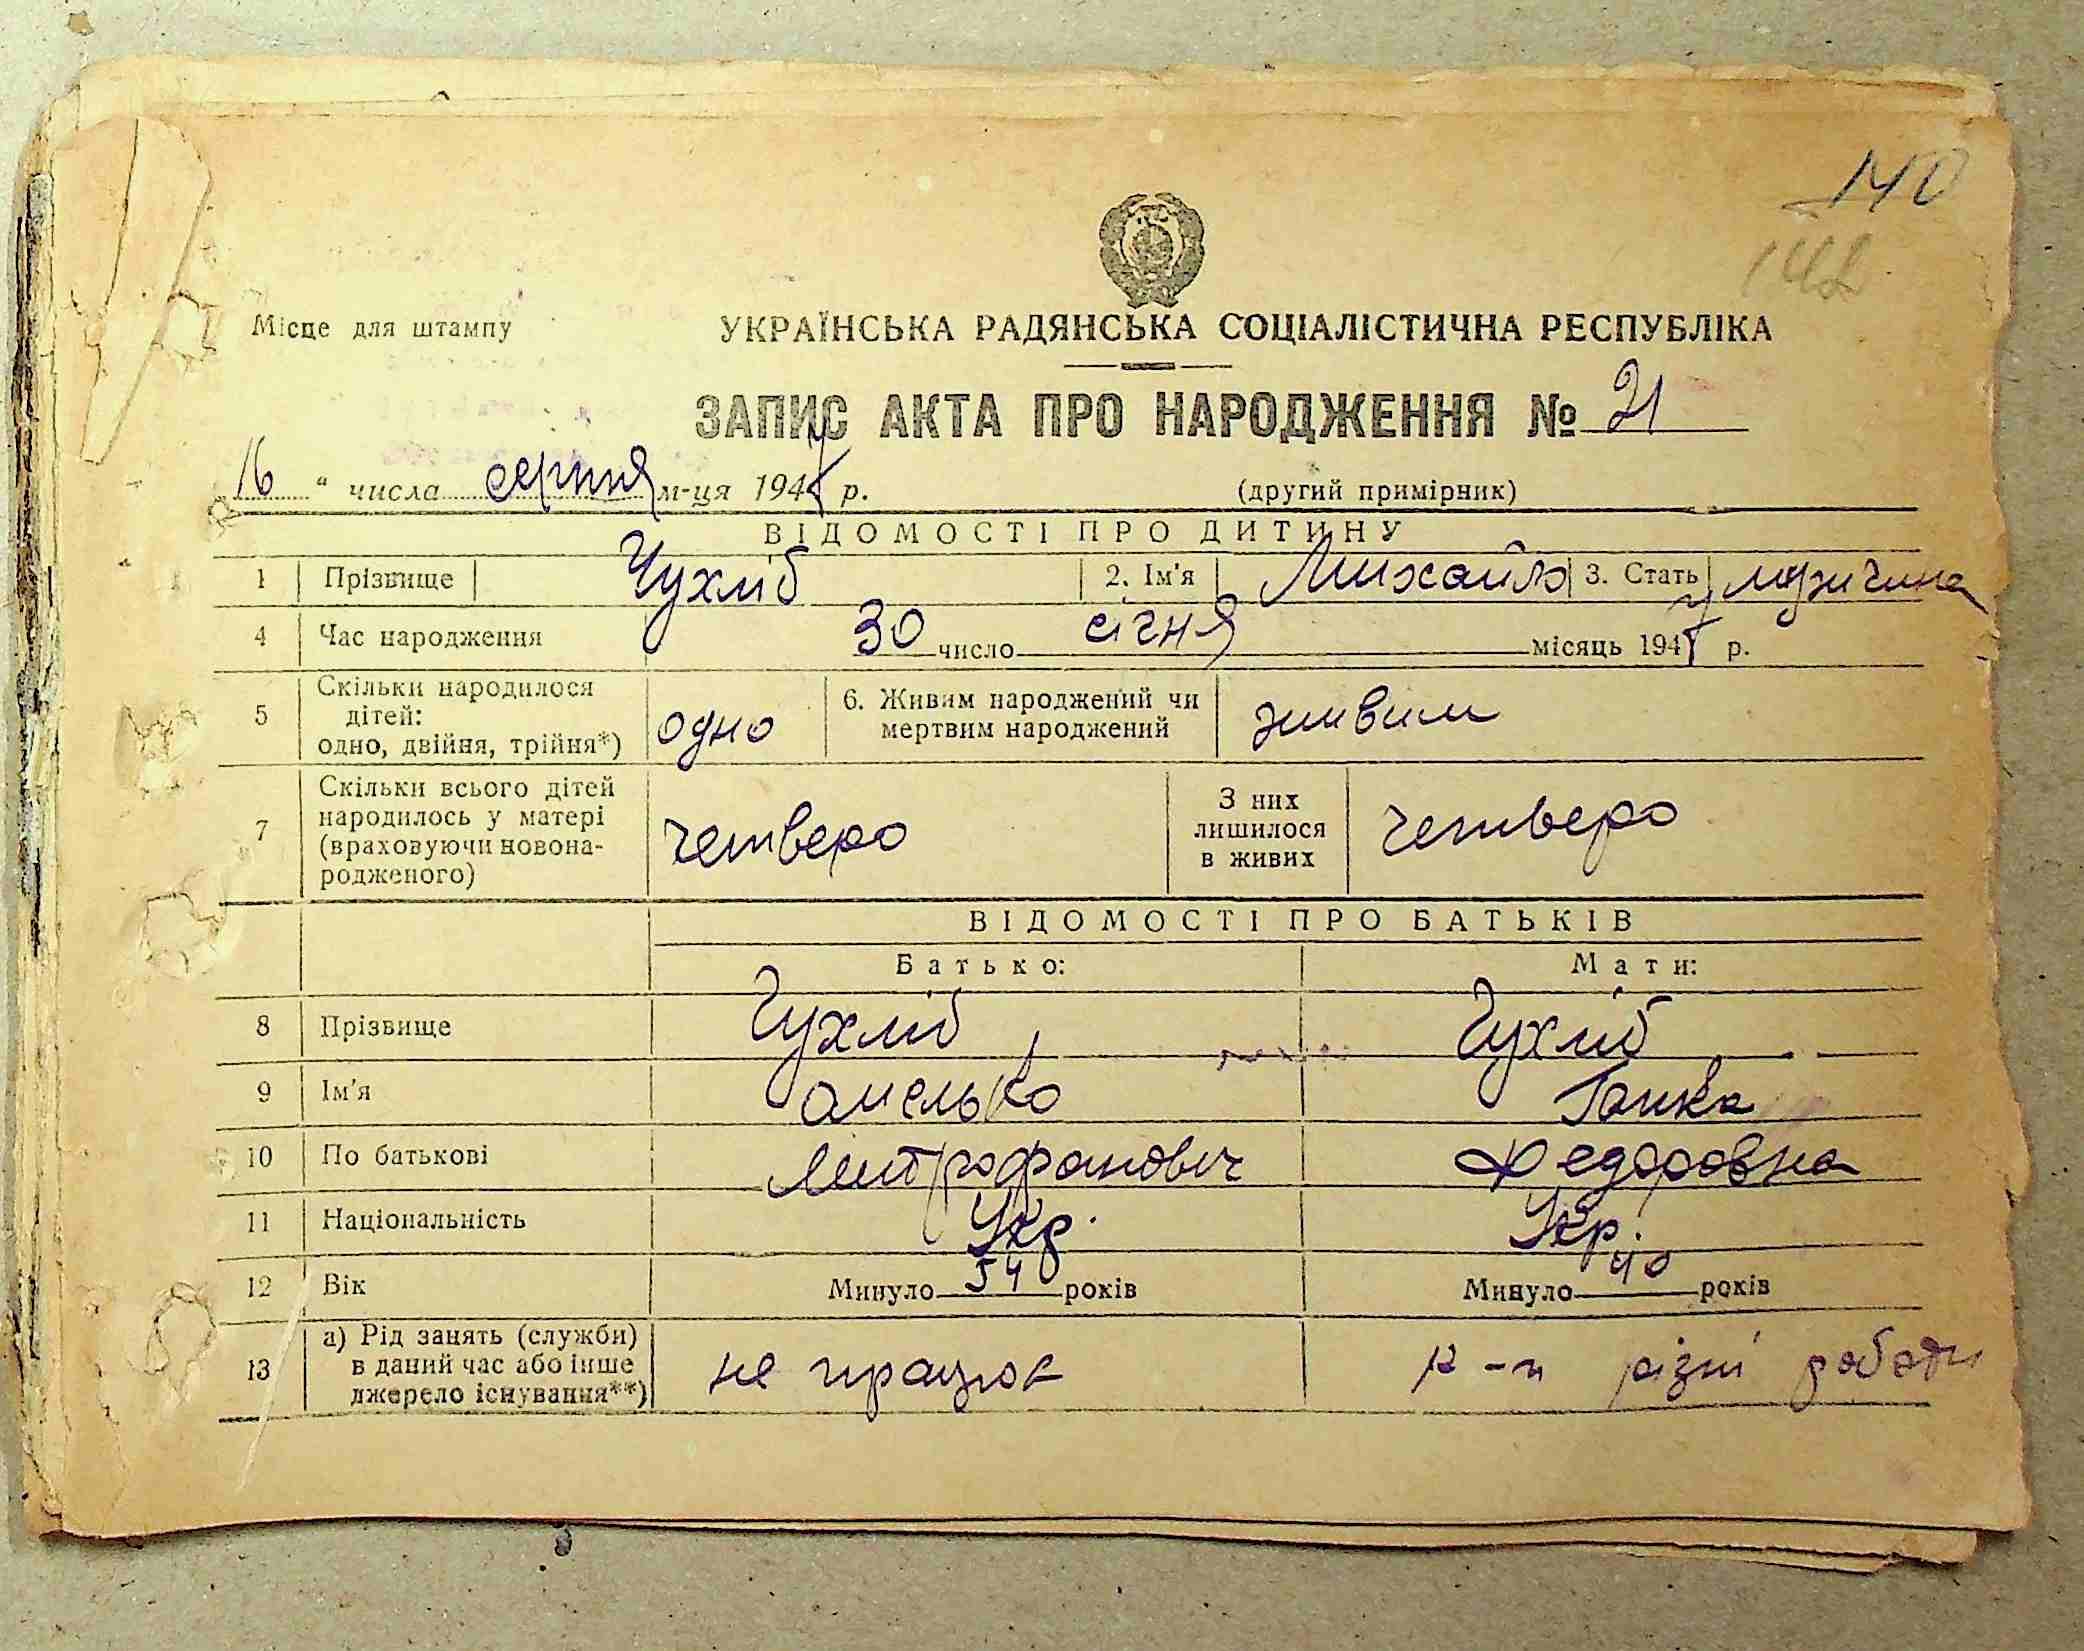 140
142
Місце для штампу
УКРАЇНСЬКА РАДЯНСЬКА СОЦІАЛІСТИЧНА РЕСПУБЛІКА
ЗАПИС АКТА ПРО НАРОДЖЕННЯ № 21
„16“ числа серпня м-ця 194 р.
(другий примірник)
ВІДОМОСТІ ПРО ДИТИНУ
1 Прізвище Чухліб 2. Ім'я Михайло 3. Стать мужчина
4 Час народження 30 число січня місяць 194 р.
5 Скільки народилося дітей: одно, двійня, трійня*) одно 6. Живим народжений чи мертвим народжений живим
7 Скільки всього дітей народилось у матері (враховуючи новона-родженого) четверо З них лишилося в живих четверо
ВІДОМОСТІ ПРО БАТЬКІВ
Батько: Мати:
8 Прізвище Чухліб Чухліб
9 Ім'я Омелько Ганна
10 По батькові Митрофанович Федоровна
11 Національність Укр. Укр.
12 Вік Минуло 54 років Минуло 40 років
13 а) Рід занять (служби) в даний час або інше джерело існування**) не працює к-п різні роботи